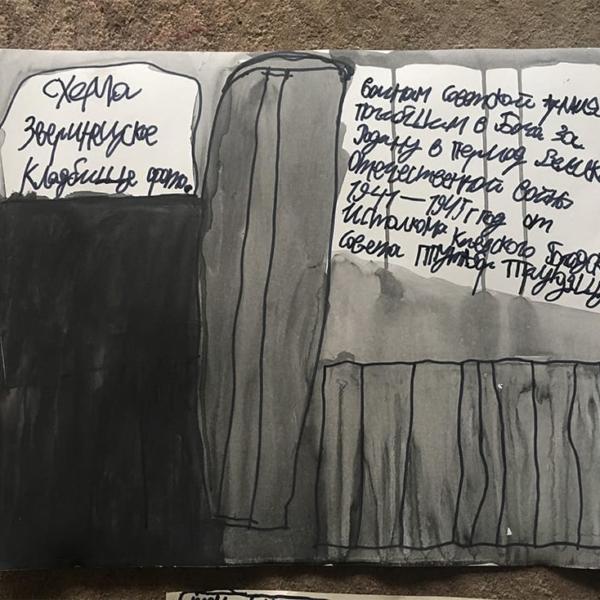 схема
Зверинецкое
Кладбище фото.
воинам Советской армии
погибшим в Боя за
Родину в период Велик
Отечественной войны
1941—1945 год от
Исполкома Киевского Городск
совета Трудящ